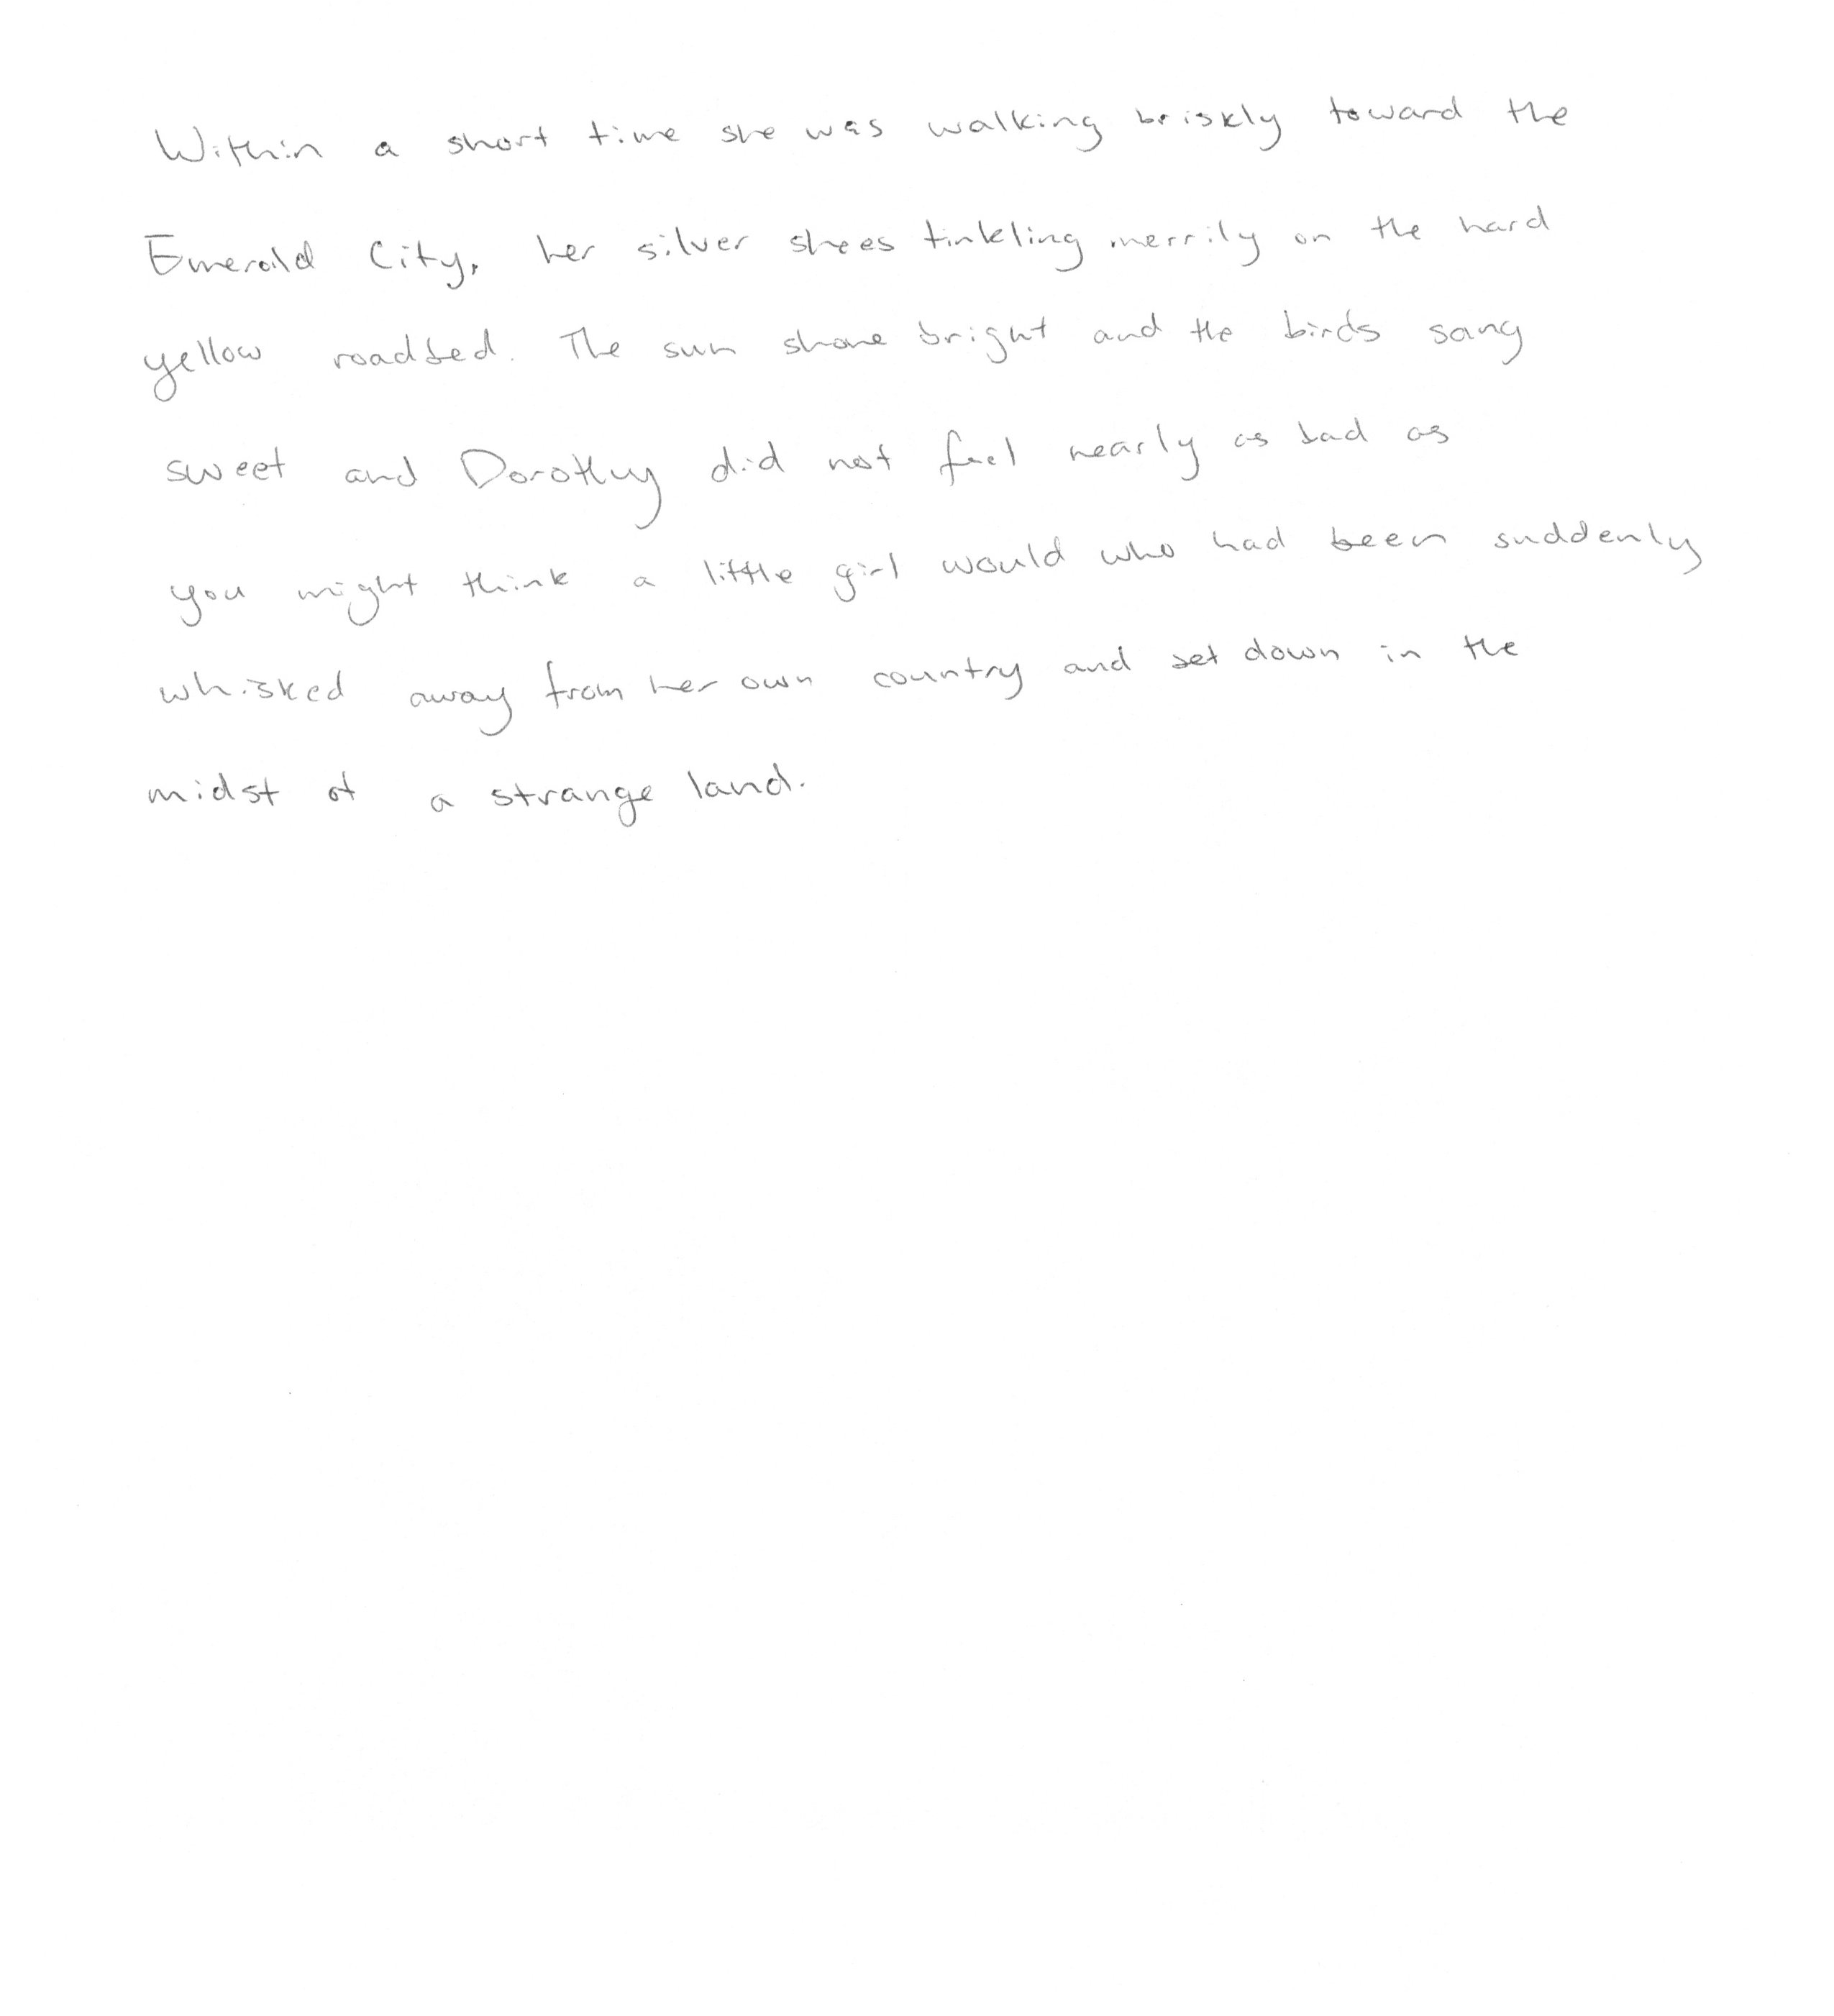 Within a short time she was walking briskly toward the
Emerald City, her silver shoes tinkling merrily on the hard
yellow roadbed. The sun shone bright and the birds sang
sweet and Dorothy did not feel nearly as bad as
you might think a little girl would who had been suddenly
whisked away from her own country and set down in the
midst of a strange land.